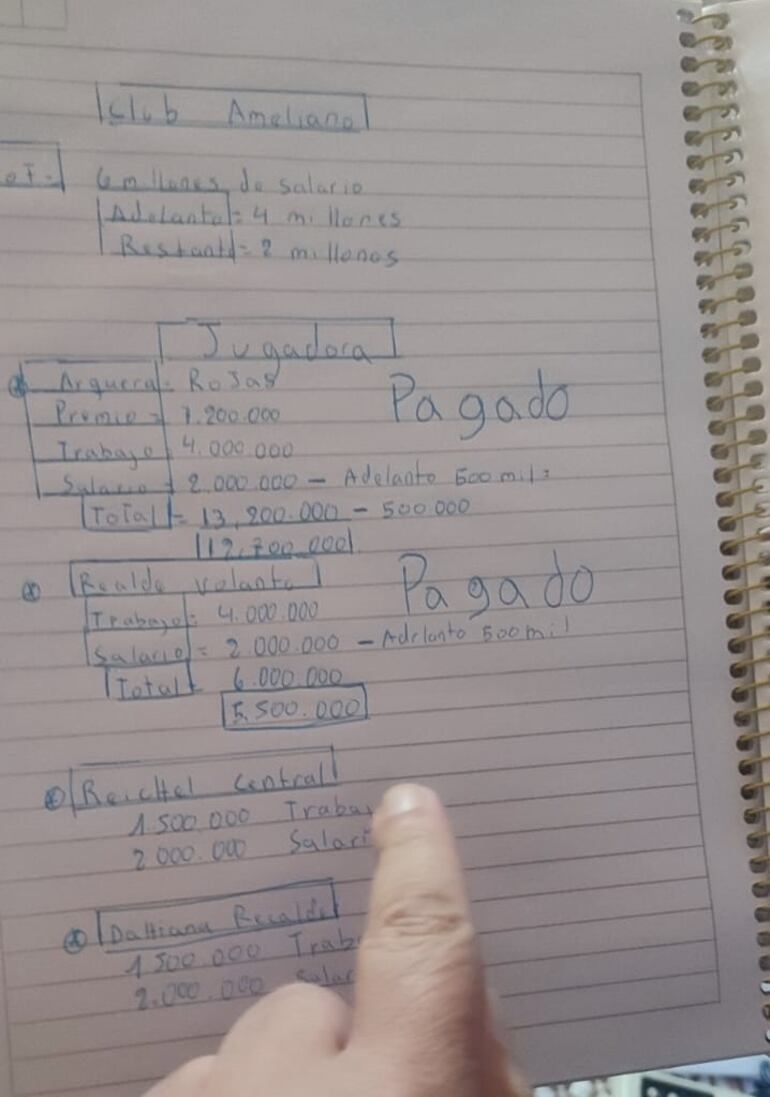 Club Ameliano
OT.
6 millones de salario
Adelanto = 4 millones
Restante = 2 millones
Jugadora
Arquera = Rojas
Pagado
Premio = 7.200.000
Trabajo 4.000.000
Salario = 2.000.000 - Adelanto 500 mil =
Total = 13,200.000 - 500.000
12.700.000
Realde Volante
Pagado
Trabajo = 4.000.000
Salario = 2.000.000 - Adelanto 500 mil
Total = 6.000.000
5.500.000
Central
1 500.000 Traba
2 000.000 Salari
Recalde
1 500 000 Trab
2.000.000 Salar